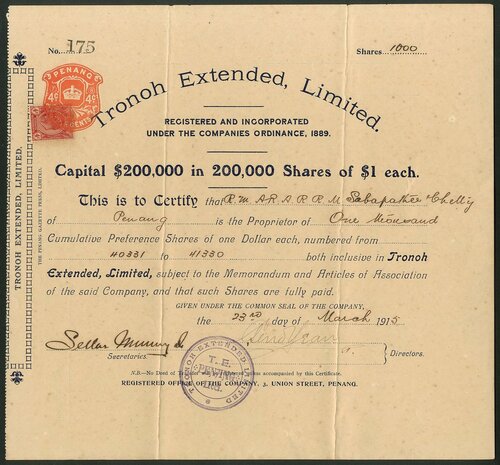 No. 175
Shares 1000
PENANG
4c 4c
CENTS
Tronoh Extended, Limited.
REGISTERED AND INCORPORATED
UNDER THE COMPANIES ORDINANCE, 1889.
Capital $200,000 in 200,000 Shares of $1 each.
This is to Certify that R. M. AR. A. R. R. M Sabapathee Chetty
of Penang is the Proprietor of One thousand
Cumulative Preference Shares of one Dollar each, numbered from
40331 to 41330 both inclusive in Tronoh
Extended, Limited, subject to the Memorandum and Articles of Association
of the said Company, and that such Shares are fully paid.
GIVEN UNDER THE COMMON SEAL OF THE COMPANY,
the 23rd day of March 1915
Secretaries.
Directors.
TRONOH EXTENDED LIMITED
T. E.
N.B.—No Deed of Transfer accompanied by this Certificate.
REGISTERED OFFICE OF THE COMPANY, 3, UNION STREET, PENANG.
TRONOH EXTENDED, LIMITED.
THE PENANG GAZETTE PRESS, LIMITED.